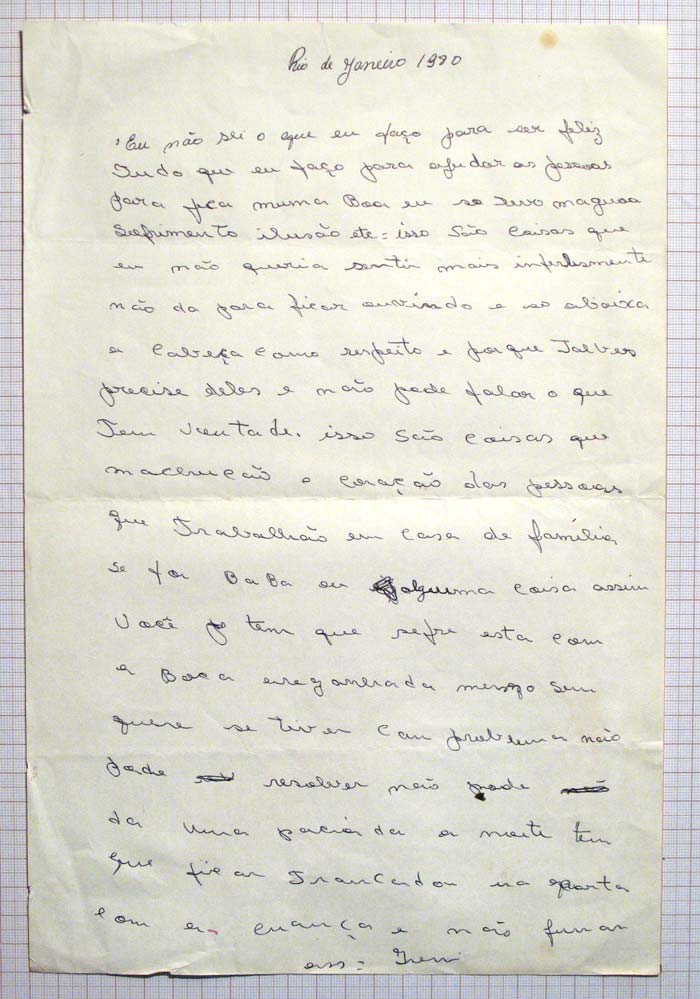 Rio de Janeiro 1980
Eu não sei o que eu faço para ser feliz
Tudo que eu faço para ajudar as pessoas
para fica numa Boa eu so levo magoa
Sofrimento ilusão etc= isso São Coisas que
eu não queria sentir mais infelismente
não da para ficar ouvindo e so abaixa
a Cabeça Como respeito e porque Talves
precise deles e não pode falar o que
Tem Vontade. isso São Coisas que
o Coração das pessoas
que Trabalhão em Casa de família
se for BaBa ou alguma Coisa assim
Você tem que sofre esta com
a Boca areganhada mesmo sem
quere se tiver com problema não
pode resolver não pode
da uma a noite tem
que ficar Trancada na
com a criança e não fumar
ass=